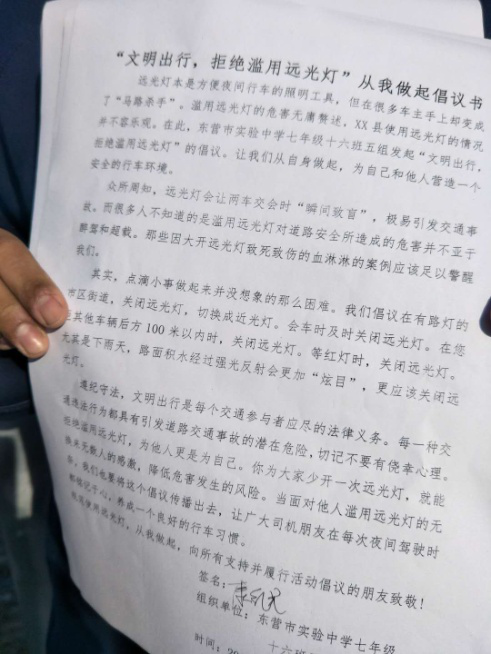 “文明出行，拒绝滥用远光灯”从我做起倡议书
远光灯本是方便夜间行车的照明工具，但在很多车主手上却变成
了“马路杀手”。滥用远光灯的危害无庸赘述，XX县使用远光灯的情况
并不容乐观。在此，东营市实验中学七年级十六班五组发起“文明出行，
拒绝滥用远光灯”的倡议。让我们从自身做起，为自己和他人营造一个
安全的行车环境。
众所周知，远光灯会让两车交会时“瞬间致盲”，极易引发交通事
故。而很多人不知道的是滥用远光灯对道路安全所造成的危害并不亚于
醉驾和超载。那些因大开远光灯致死致伤的血淋淋的案例应该足以警醒
我们。
其实，点滴小事做起来并没想象的那么困难。我们倡议在有路灯的
市区街道，关闭远光灯，切换成近光灯。会车时及时关闭远光灯。在您
其他车辆后方100米以内时，关闭远光灯。等红灯时，关闭远光灯。
其是下雨天，路面积水经过强光反射会更加“炫目”，更应该关闭远
光灯。
遵纪守法，文明出行是每个交通参与者应尽的法律义务。每一种交
通违法行为都具有引发道路交通事故的潜在危险，切记不要有侥幸心理。
拒绝滥用远光灯，为他人更是为自己。你为大家少开一次远光灯，就能
换来无数人的感激，降低危害发生的风险。当面对他人滥用远光灯的无
奈，我们也要将这个倡议传播出去，让广大司机朋友在每次夜间驾驶时
都铭记于心，养成一个良好的行车习惯。
使用远光灯，从我做起，向所有支持并履行活动倡议的朋友致敬！
签名：
组织单位：东营市实验中学七年级
十六班
时间：20